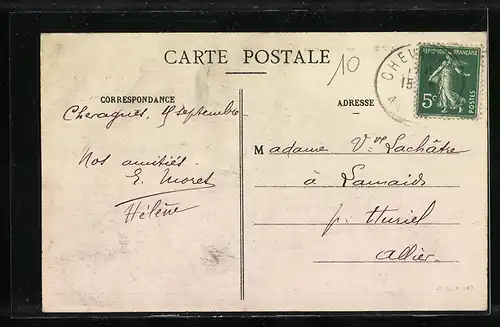 CARTE POSTALE
10
CHEV
15
REPUBLIQUE FRANÇAISE
5c
POSTES
CORRESPONDANCE
ADRESSE
Chevagnes, 4 septembre
Nos amitiés.
E. Moret
Hélène
Madame Vve Lachâtre
à Lamaids
p. Huriel
Allier.